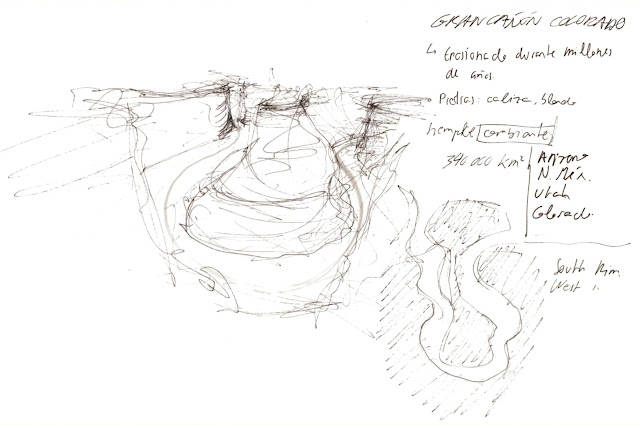 GRAN CAÑÓN COLORADO
↳ Erosionado durante millones
de años
• Piedras: caliza, blanda
siempre cambiante
390 000 km²
Arizona
N. Méx.
Utah
Colorado.
South Rim
West